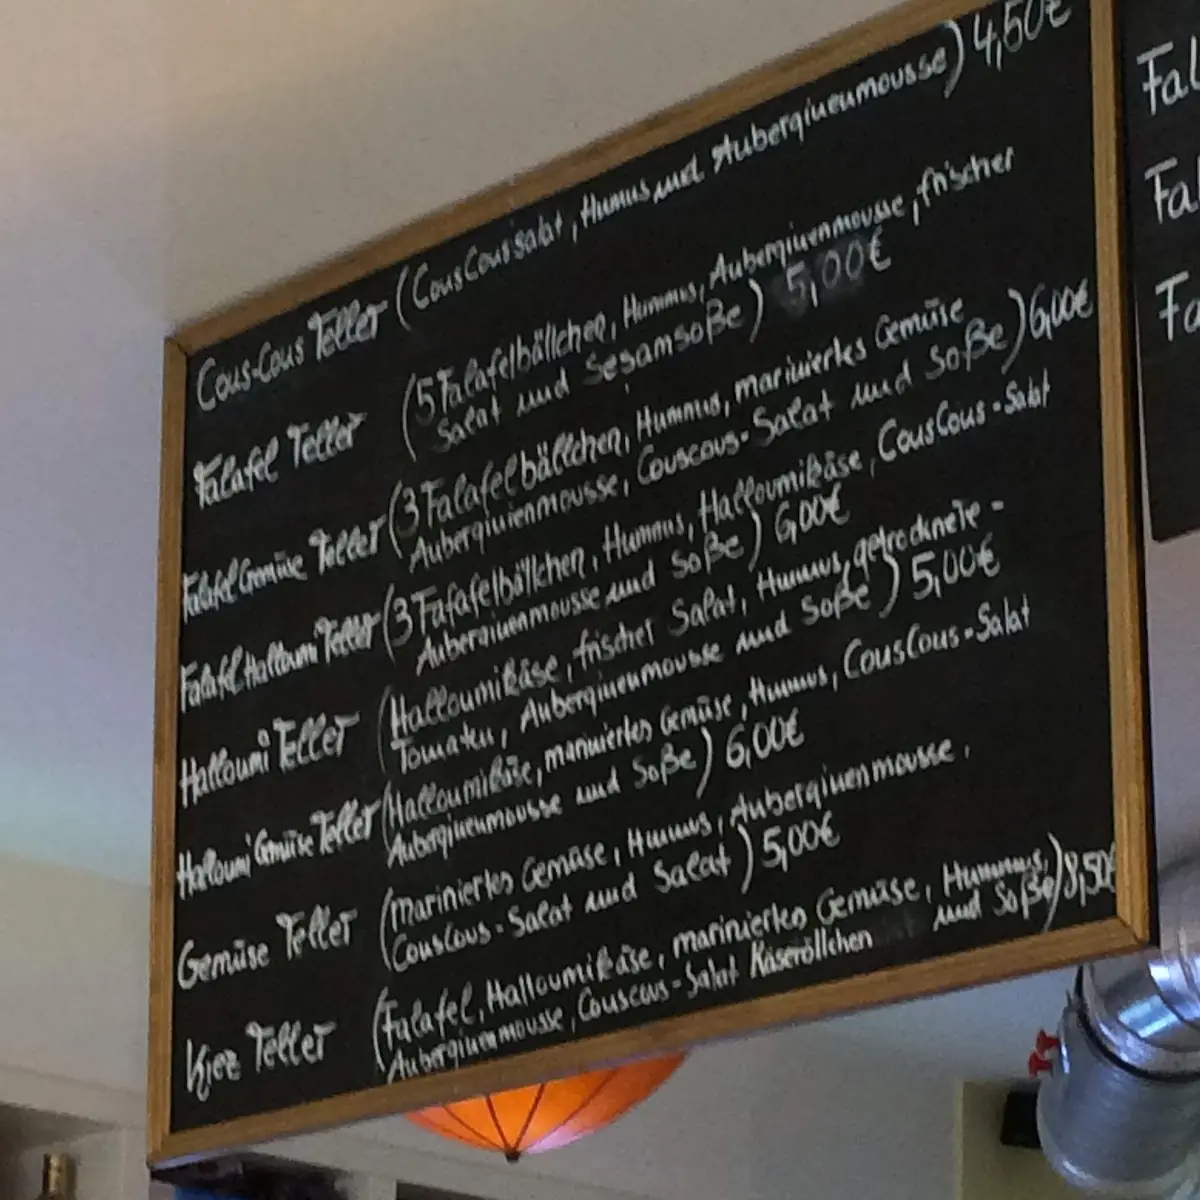 Cous-Cous Teller (CousCoussalat, Humus und Auberginenmousse) 4,50€
Falafel Teller (5 Falafelbällchen, Hummus, Auberginenmousse, frischer
Salat und Sesamsoße) 5,00€
Falafel Gemüse Teller (3 Falafelbällchen, Hummus, mariniertes Gemüse
Auberginenmousse, Couscous-Salat und Soße) 6,00€
Falafel Halloumi Teller (3 Falafelbällchen, Hummus, Halloumikäse, CousCous-Salat
Auberginenmousse und Soße) 6,00€
Halloumi Teller (Halloumikäse, frischer Salat, Humus, getrocknete-
Tomaten, Auberginenmousse und Soße) 5,00€
Halloumi Gemüse Teller (Halloumikäse, mariniertes Gemüse, Humus, CousCous-Salat
Auberginenmousse und Soße) 6,00€
Gemüse Teller (Mariniertes Gemüse, Humus, Auberginenmousse,
CousCous-Salat und Salat) 5,00€
Kiez Teller (Falafel, Halloumikäse, mariniertes Gemüse, Hummus,
Auberginenmousse, Couscous-Salat Käseröllchen und Soße) 8,50€
Fal
Fal
Fa